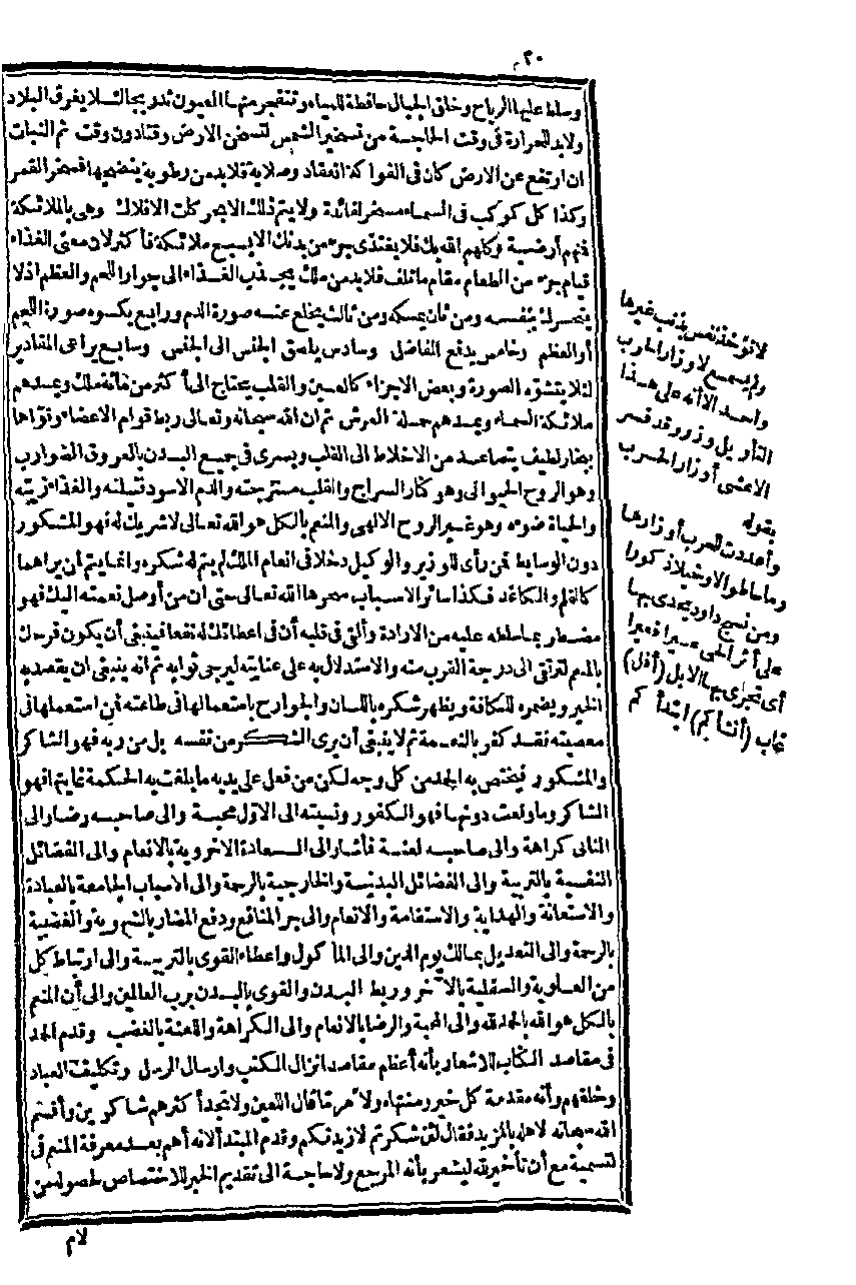 ٢٠
وسلط عليها الرياح وخلق الجبال حافظة للمياه وتنفجر منها العيون تدريجا لئلا يغرق البلاد
ولا بد للحرارة في وقت الحاجة من تسخير الشمس لتسخن الارض وقتا دون وقت ثم النبات
ان ارتفع عن الارض كان في الفواكه انعقاد وصلابة فلا بد من رطوبة ينضجها فسخر القمر
وكذا كل كوكب في السماء مسخر لفائدة ولا يتم ذلك الا بحركات الافلاك وهي بالملائكة
ثم أرضية وكلهم الله بك فلا يغتذي جزء من بدنك الا بسبع ملائكة فأكثر لان معنى الغذاء
قيام جزء من الطعام مقام ما تلف فلا بد من ملك يجذب الغذاء الى جوار اللحم والعظم اذ لا
يتحرك بنفسه ومن ثان يمسكه ومن ثالث يخلع عنه صورة الدم ورابع يكسوه صورة اللحم
أو العظم وخامس يدفع الفاضل وسادس يلصق الجنس الى الجنس وسابع يراعى المقادير
لئلا يتشوه الصورة وبعض الاجزاء كالعين والقلب يحتاج الى أكثر من مائة ملك ويمدهم
ملائكة السماء ويمدهم حملة العرش ثم ان الله سبحانه وتعالى ربط قوام الاعضاء وقواها
ببخار لطيف يتصاعد من الاخلاط الى القلب ويسرى في جميع البدن بالعروق الضوارب
وهو الروح الحيواني وهو كنار السراج والقلب مسرجته والدم الاسود فتيلته والغذاء زيته
والحياة ضوءه وهو غير الروح الالهي والمنعم بالكل هو الله تعالى لا شريك له فهو المشكور
دون الوسايط فمن رأى للوزير والوكيل دخلا في انعام الملك لم يتم له شكره وانما يتم ان يراهما
كالقلم والكاغد فكذا سائر الاسباب سخرها الله تعالى حتى ان من أوصل نعمته اليك فهو
مضطر بما سلطه عليه من الارادة وألقى في قلبه أن في اعطائك له نفعا فينبغي أن يكون فرحك
بالمنعم لترتقي الى درجة القرب منه والاستدلال به على عنايته ليرجى ثوابه ثم انه ينبغي ان يقصد به
الخير ويضمره للكافة ويظهر شكره باللسان والجوارح باستعمالها في طاعته فمن استعملها في
معصيته فقد كفر بالنعمة ثم لا ينبغي أن يرى الشكر من نفسه بل من ربه فهو الشاكر
والمشكور فيختص به الحمد من كل وجه لكن من فعل على يديه ما بلغت به الحكمة غايتها فهو
الشاكر وما وقعت دونها فهو الكفور ونسبته الى الاول محبة والى صاحبه رضا والى
الثاني كراهة والى صاحبه لعنة فأشار الى السعادة الاخروية بالانعام والى الفضائل
النفسية بالتربية والى الفضائل البدنية والخارجية بالرحمة والى الاسباب الجامعة بالعبادة
والاستعانة والهداية والاستقامة والانعام والى جر المنافع ودفع المضار بالشهوية والغضبية
بالرحمة والى التعديل بمالك يوم الدين والى المأكول واعطاء القوى بالتربية والى ارتباط كل
من العلوية والسفلية بالآخر وربط البدن والقوى بالبدن برب العالمين والى أن المنعم
بالكل هو الله بالحمد لله والى المحبة والرضا بالانعام والى الكراهة واللعنة بالغضب وقدم الحمد
في مقاصد الكتاب للاشعار بأنه أعظم مقاصد انزال الكتب وارسال الرسل وتكليف العباد
وخلقهم وأنه مقدمة كل خير ومنتهاه ولأمر ما قال اللعين ولا تجد أكثرهم شاكرين وأقسم
الله سبحانه لاهله بالمزيد فقال لئن شكرتم لازيدنكم وقدم المبتدأ لانه أهم بعد معرفة المنعم في
لتسمية مع أن تأخير لله ليشعر بأنه المرجع ولا حاجة الى تقديم الخبر للاختصاص لحصوله من
لام
لا تؤخذ نفس بذنب غيرها
ولم يسمع لاوزار الحرب
واحد الا أنه على هذا
التأويل وزر وقد فسر
الاعشى أوزار الحرب
بقوله
وأعددت للحرب أوزارها
رماحا طوالا وخيلا ذكورا
ومن نسج داود يحدى بها
على أثر الحي عيرا فعيرا
أي تجرى بها الابل (أفل)
غاب (أنشأكم) ابتدأكم